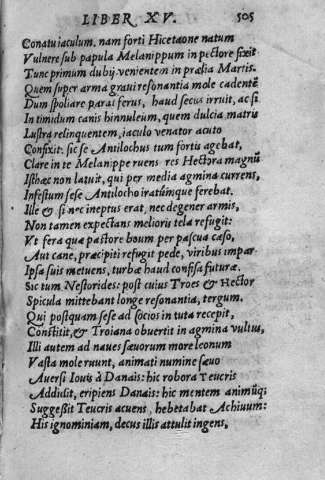 LIBER XV. 505
Conatu iaculum. nam forti Hicetaone natum
Vulnere sub papula Melanippum in pectore fixit
Tunc primum dubij venientem in prælia Martis.
Quem super arma graui resonantia mole cadentē
Dum spoliare parat ferus, haud secus irruit, ac si
In timidum canis hinnuleum, quem dulcia matris
Lustra relinquentem, iaculo venator acuto
Confixit: sic se Antilochus tum fortis agebat,
Clare in te Melanippe ruens res Hectora magnū
Isthæc non latuit, qui per media agmina currens,
Infestum sese Antilocho iratumque ferebat.
Ille & si nec ineptus erat, nec degener armis,
Non tamen expectans melioris tela refugit:
Vt fera quæ pastore boum per pascua cæso,
Aut cane, præcipiti refugit pede, viribus impar
Ipsa suis metuens, turbæ haud confisa futuræ.
Sic tum Nestorides: post cuius Troes & Hector
Spicula mittebant longe resonantia, tergum.
Qui postquam sese ad socios in tuta recepit,
Constitit, & Troiana obuertit in agmina vultus,
Illi autem ad naues sæuorum more leonum
Vasta mole ruunt, animati numine sæuo
Auersi Iouis à Danais: hic robora Teucris
Addidit, eripiens Danais: hic mentem animūq;
Suggessit Teucris acuens, hebetabat Achiuum:
His ignominiam, decus illis attulit ingens,